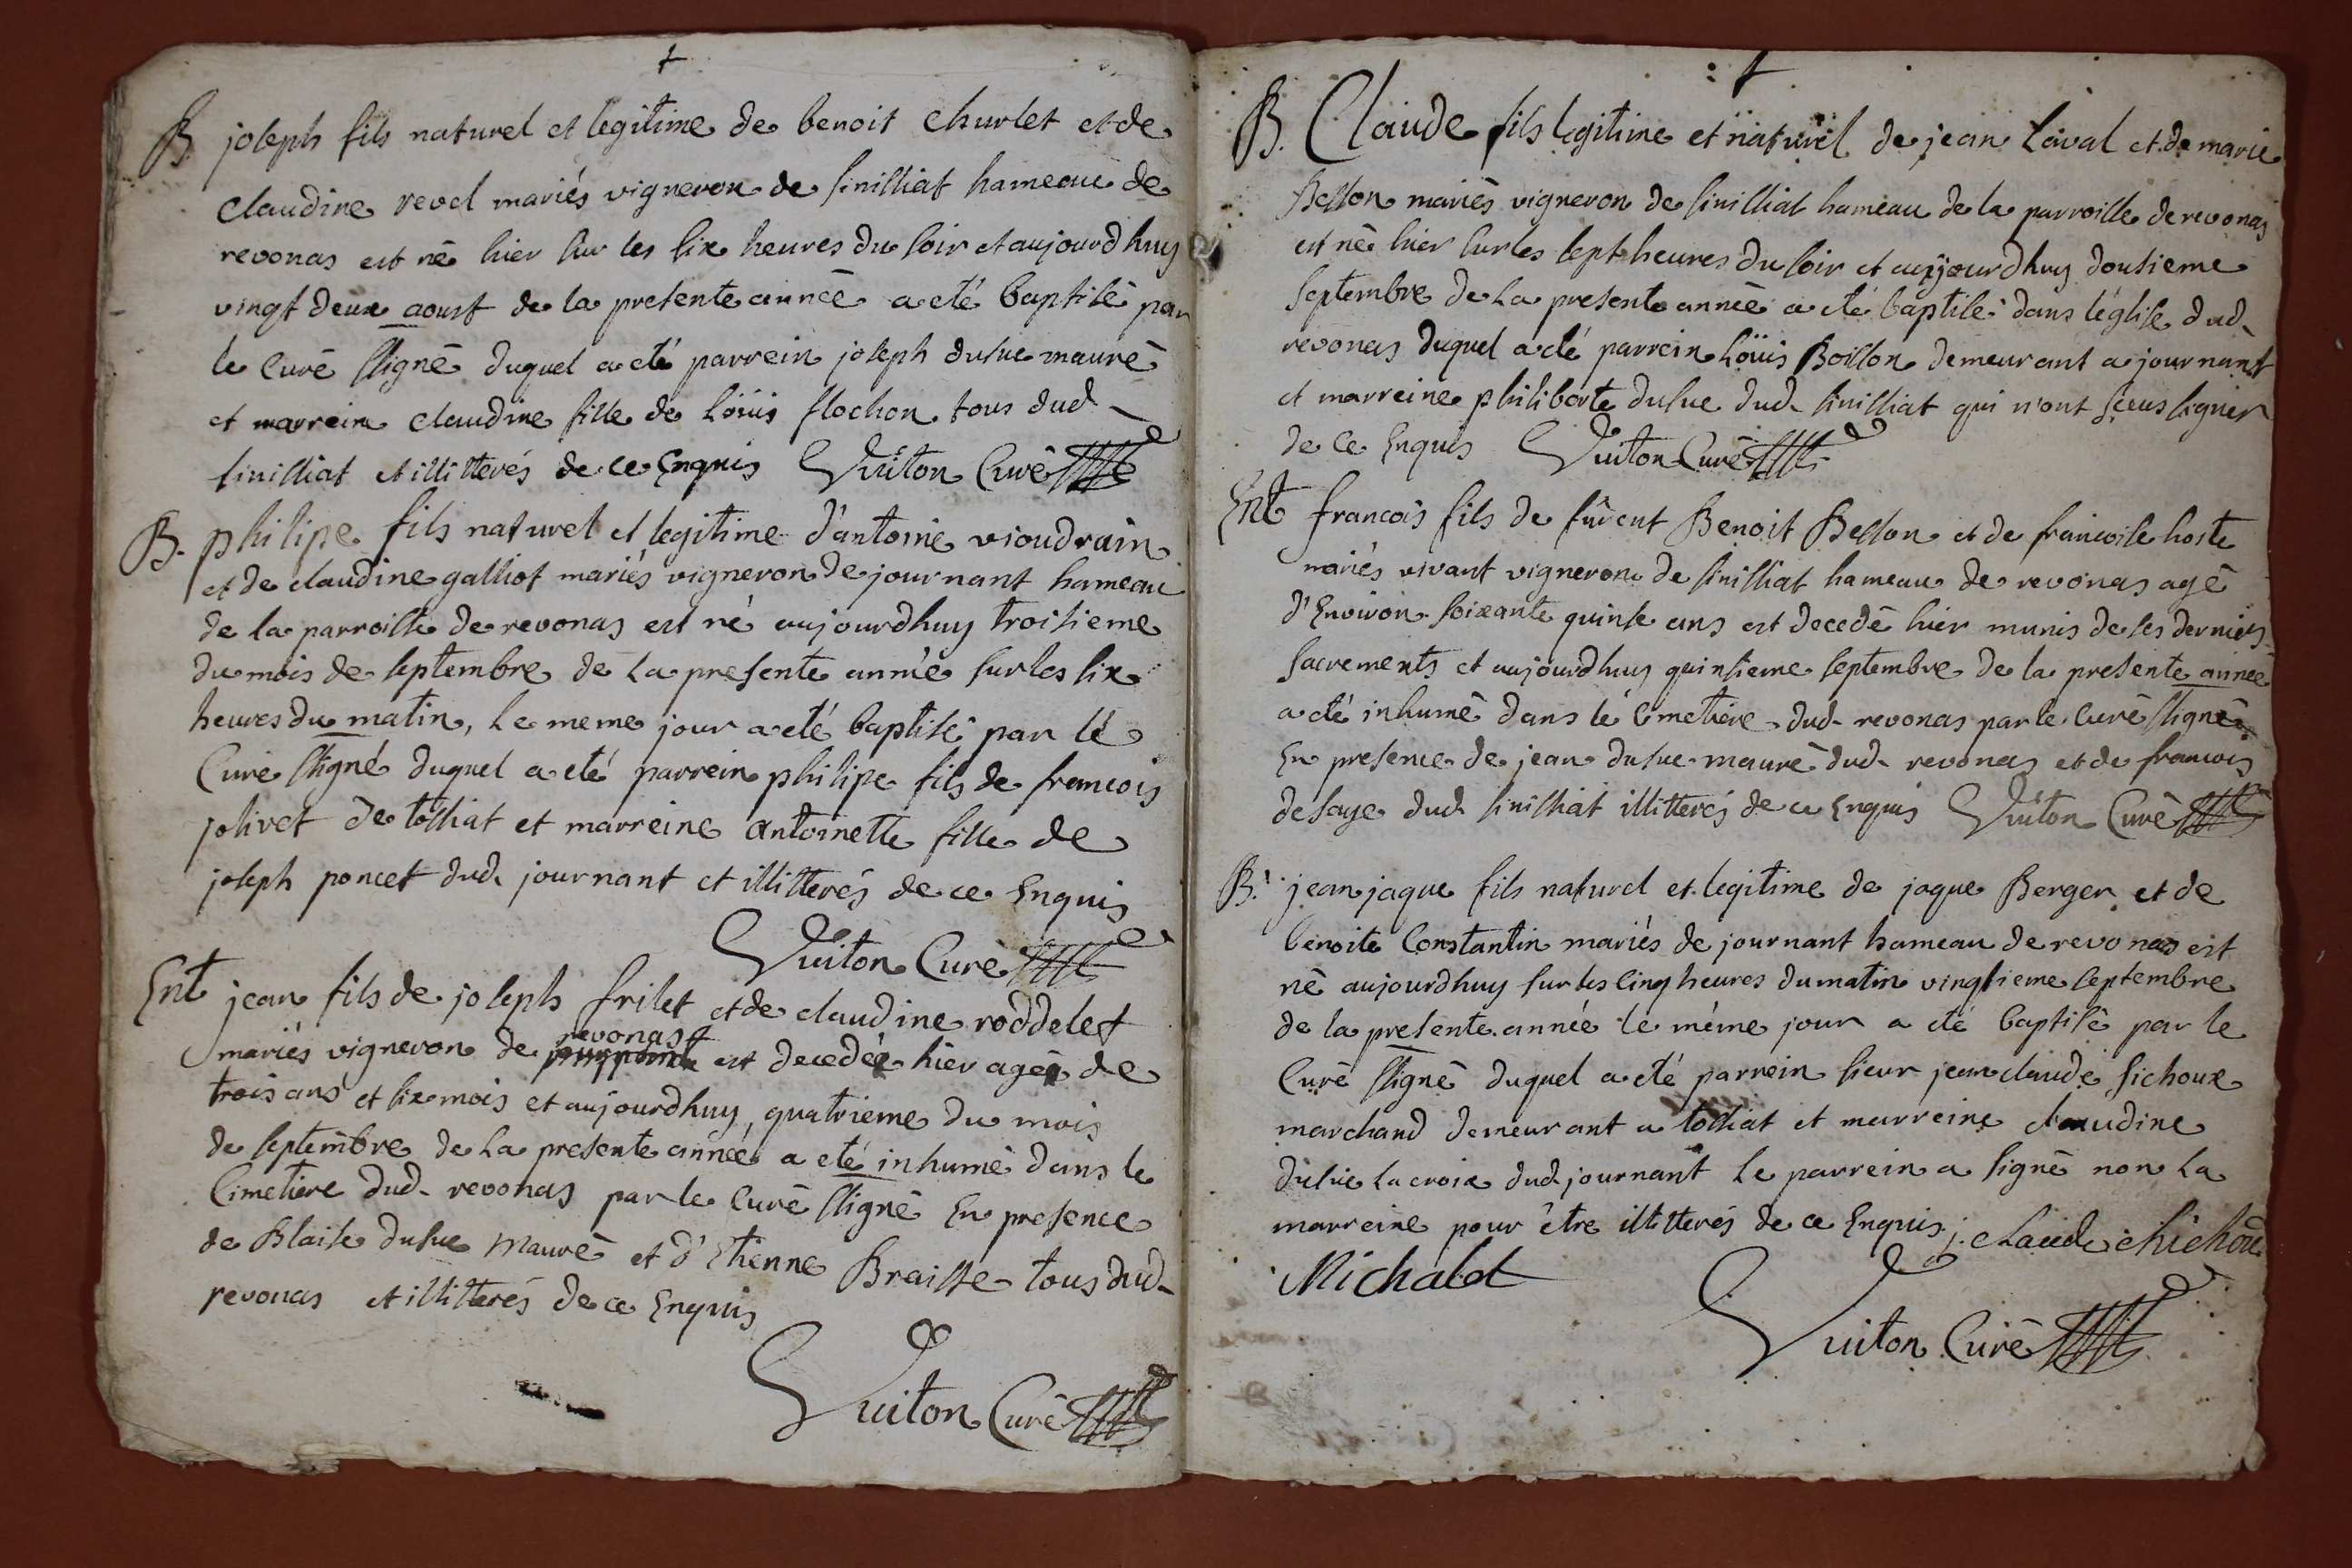 B joseph fils naturel et legitime de benoit Churlet et de
Claudine revel mariés vigneron de sinilliat hameau de
revonas est né hier sur les six heures du soir et aujourdhuy
vingt deux aoust de la presente année a eté baptisé par
le Curé ssigné duquel a eté parrein joseph dusuc mauré
et marrein claudine fille de Loüis flochon tous dud
sinilliat et illitterés de ce Enquis Vuiton Curé
B. philipe fils naturel et legitime d'antoine vioudrain
et de claudine galliot mariés vigneron de journant hameau
de la parroisse de revonas est né aujourdhuy troisieme
du mois de septembre de La presente année sur les six
heures du matin, Le meme jour a eté baptisé par le
Curé ssigné duquel a eté parrein philipe fils de francois
jolivet de tossiat et marreine antoinette fille de
joseph poncet dud journant et illitterés de ce Enquis
Vuiton Curé
Ent jean fils de joseph frilet et de claudine roddelet
revonas
mariés vigneron de est decedée hier agée de
trois ans et six mois et aujourdhuy quatrieme du mois
de septembre de La presente année a eté inhumé dans le
Cimetiere dud revonas par le Curé ssigné En presence
de Blaise dusuc Mauré et d'Etienne Braisse tous dud
revonas et illitterés de ce Enquis
Vuiton Curé
B. Claude fils legitime et naturel de jean Laval et de marie
Besson mariés vigneron de sinilliat hameau de la parroisse de revonas
est né hier sur les sept heures du soir et aujourdhuy dousieme
septembre de La presente année a eté baptisé dans l'église dud
revonas duquel a eté parrein Loüis Boisson demeurant a journant
et marreine philiberte dusuc dud sinilliat qui n'ont sceus signer
de Ce Enquis Vuiton Curé
Ent francois fils de furent Benoit Besson et de francoise hoste
mariés vivant vigneron de sinilliat hameau de revonas agé
d'Environ soixante quinse ans est decedé hier munis de ses derniers
sacrements et aujourdhuy quinsieme septembre de la presente année
a eté inhumé dans le Cimetiere dud revonas par le Curé ssigné
En presence de jean dusuc mauré dud revonas et de francois
desaye dud sinilliat illitterés de ce Enquis Vuiton Curé
B. jean jaque fils naturel et legitime de jaque Berger et de
benoite Constantin mariés de journant hameau de revonas est
né aujourdhuy sur les cinq heures du matin vingtieme septembre
de la presente année le même jour a eté baptisé par le
Curé ssigné duquel a eté parrein sieur jean claude sichoux
marchand demeurant a tossiat et marreine claudine
dusuc La croix dud journant Le parrein a signé non La
marreine pour être illitterés de ce Enquis j. claude chichoud
Michalet
Vuiton Curé